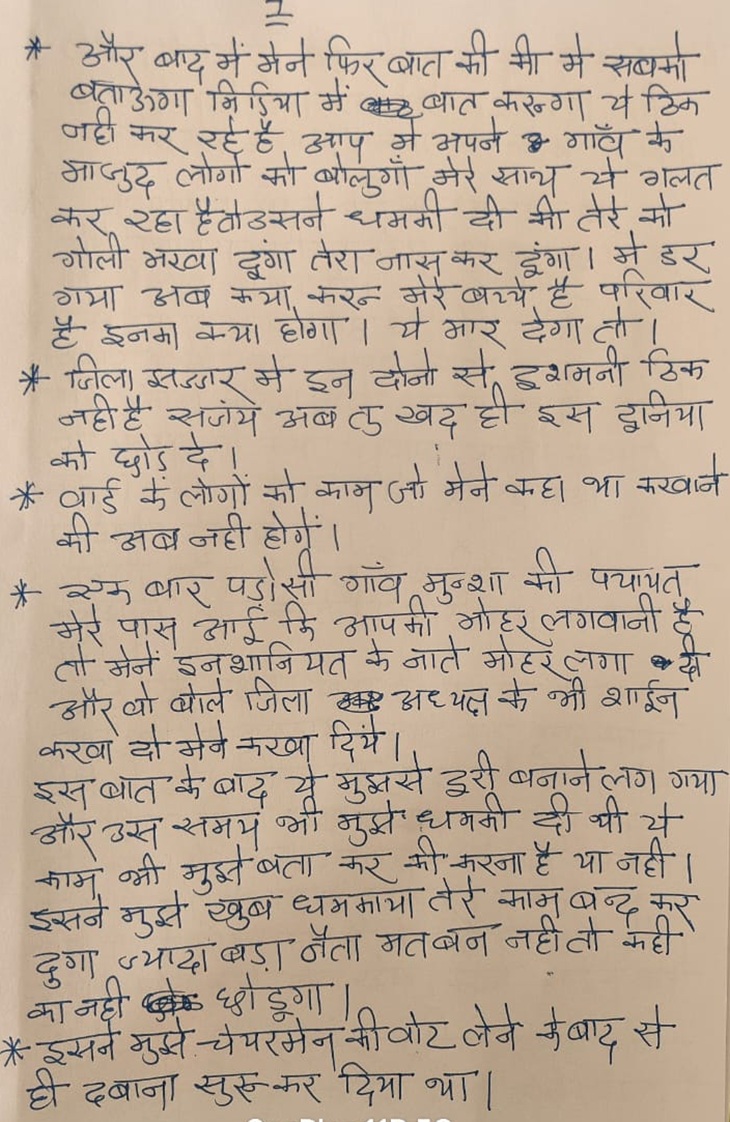 1
* और बाद में मेने फिर बात की की मे सबको
बताऊगा मिडिया में बात करुन्गा ये ठिक
नही कर रहे है आप मे अपने गाँव के
माजुद लोगो को बोलुगाँ मेरे साथ ये गलत
कर रहा है तो उसने धमकी दी की तेरे को
गोली मरवा दूंगा तेरा नास कर दूंगा । मे डर
गया अब कया करु मेरे बच्चे है परिवार
है इनका कया होगा । ये मार देगा तो ।
* जिला झज्जर मे इन दोनो से दुशमनी ठिक
नही है सजंय अब तु खद ही इस दुनिया
को छोड दे ।
* वार्ड के लोगों को काम जो मेने कहा था करवाने
की अब नही होगें ।
* एक बार पड़ोसी गाँव मुन्शा की पचायत
मेरे पास आई कि आपकी मोहर लगवानी है
तो मेनें इनशानियत के नाते मोहर लगा दी
और वो बोले जिला अध्यक्ष के भी शाईन
करवा दो मेने करवा दिये ।
इस बात के बाद ये मुझसे दुरी बनाने लग गया
और उस समय भी मुझे धमकी दी थी ये
काम भी मुझे बता कर की करना है या नही ।
इसने मुझे खुब धमकाया तेरे काम बन्द कर
दुगा ज्यादा बड़ा नेता मत बन नही तो कही
का नही छोडूगा ।
* इसने मुझे चेयरमेन की वोट लेने के बाद से
ही दबाना सुरु कर दिया था ।